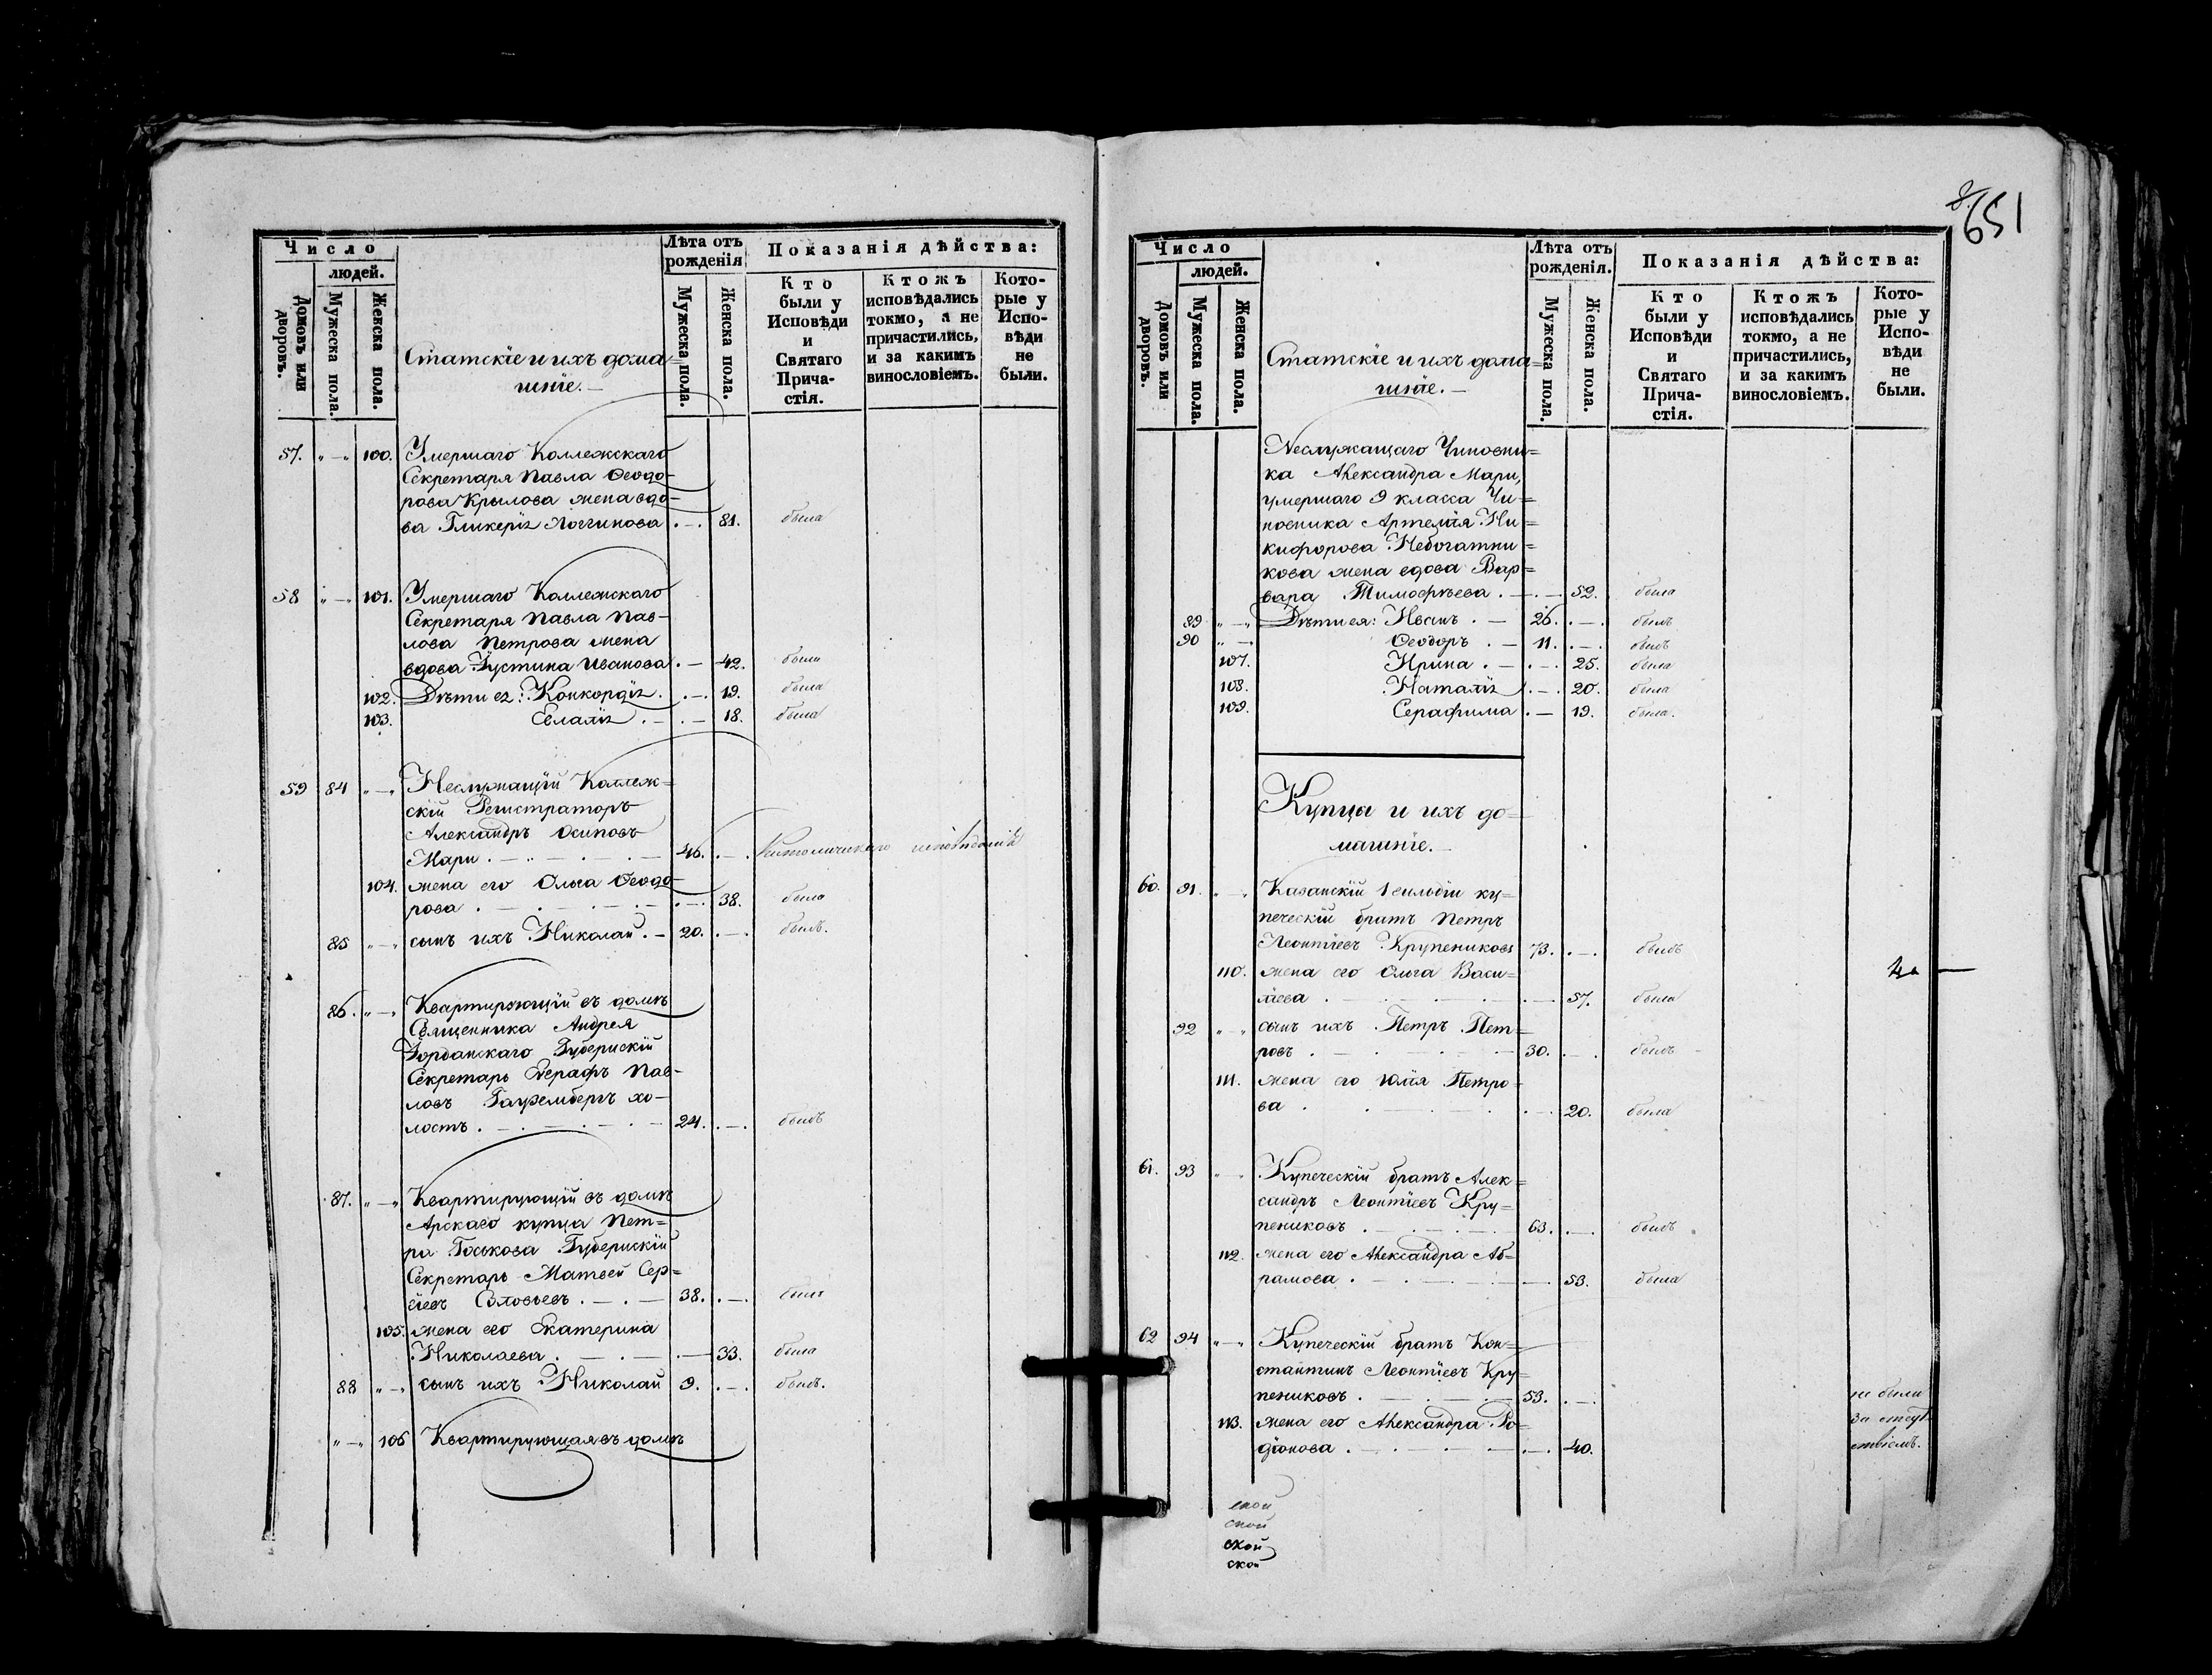 Число
людей.
Домовъ или дворовъ.
Мужеска пола.
Женска пола.
Статскіе и ихъ дома=
шніе.—
Лѣта отъ рожденія
Мужеска пола.
Женска пола.
Показанія дѣйства:
Кто были у Исповѣди и Святаго Прича-стія.
Ктожъ исповѣдались токмо, а не причастились, и за какимъ винословіемъ.
Кото-рые у Испо-вѣди не были.
57. „ — „ 100. Умершаго Коллежскаго
Секретаря Павла Ѳеодо-
рова Крылова жена вдо-
ва Гликерія Логгинова . — . 81. была
58 „ — „ 101. Умершаго Коллежскаго
Секретаря Павла Пав-
лова Петрова жена
вдова Іустина Иванова . — 42. была
102. Дѣти ея: Конкордія . . — . 19. была
103. Евлалія . — . — 18. была
59 84 „ — „ Неслужащій Коллеж=
скій Регистраторъ
Александръ Осиповъ
Мари . — „ — . — . — 46. . — . Католическаго исповѣданія
104. жена его Ольга Ѳеодо-
рова . — . — . — . — . — . 38. была
85 „ — „ сынъ ихъ Николай . — 20. . — . былъ.
86. „ — „ Квартирующій въ домѣ
Священника Андрея
Іорданскаго Губернскій
Секретарь Ѳерафъ Пав-
ловъ хо-
лостъ . — . — . — . — 24. . — . былъ
87. „ — „ Квартирующій въ домѣ
Арскаго купца Пет=
ра Госькова Губернскій
Секретарь Матвей Сер=
гіевъ Соловьевъ . — . — 38. . — . былъ
105. жена его Екатерина
Николаева . — . — . — 33. была
88 „ — „ сынъ ихъ Николай 9. . — . былъ.
„ — „ 106 Квартирующая въ домѣ
651
Число
людей.
Домовъ или дворовъ.
Мужеска пола.
Женска пола.
Статскіе и ихъ дома=
шніе.—
Лѣта отъ рожденія.
Мужеска пола.
Женска пола.
Показанія дѣйства:
Кто были у Исповѣди и Святаго Прича-стія.
Ктожъ исповѣдались токмо, а не причастились, и за какимъ винословіемъ.
Кото-рые у Испо-вѣди не были.
Неслужащаго Чиновни=
ка Александра Мари,
умершаго 9 класса Чи=
новника Артемія Ни=
кифорова Небогатни=
кова жена вдова Вар=
вара Тимофѣева . — . — 52. была
89 „ — „ Дѣти ея: Иванъ . — 26. . — . былъ
90 „ — „ Ѳеодоръ . — 11. . — . былъ
107. Ирина . — . — . 25. была
108. Наталія . — . 20. была
109. Серафима . — 19. была.
Купцы и ихъ до=
машніе.—
60. 91. „ — „ Казанскій 1 гильдіи ку=
печескій братъ Петръ
Леонтіевъ Крупениковъ 73. . — . былъ
110. жена его Ольга Васи=
ліева . — . — . — . — 57. была
92 „ — „ сынъ ихъ Петръ Пет=
ровъ . — . — . — 30. . — . былъ
111. жена его Юлія Петро=
ва . — . — . — . — . 20. была
61. 93 „ — „ Купеческій братъ Алек=
сандръ Леонтіевъ Кру=
пениковъ . — . — . — 63. . — . былъ
112. жена его Александра Аб=
рамова . — . — . — . — 53. была
62 94 „ — „ Купеческій братъ Кон=
стантинъ Леонтіевъ Кру=
пениковъ . — . — . — 53. . — . не были
113. жена его Александра Ро= за отсут
діонова . — . — . — . — . 40. ствіемъ.
ской
ской
ской
ской